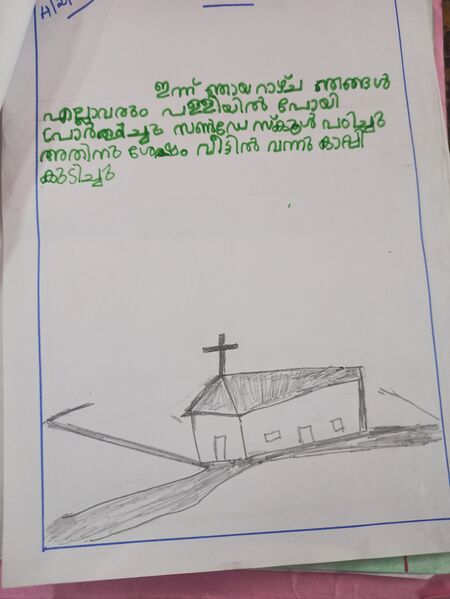 ഇന്ന് ഞായറാഴ്ച ഞങ്ങൾ
എല്ലാവരും പള്ളിയിൽ പോയി
പ്രാർത്ഥിച്ചു സൺഡേ സ്കൂൾ പഠിച്ചു
അതിനു ശേഷം വീട്ടിൽ വന്നു കാപ്പി
കുടിച്ചു